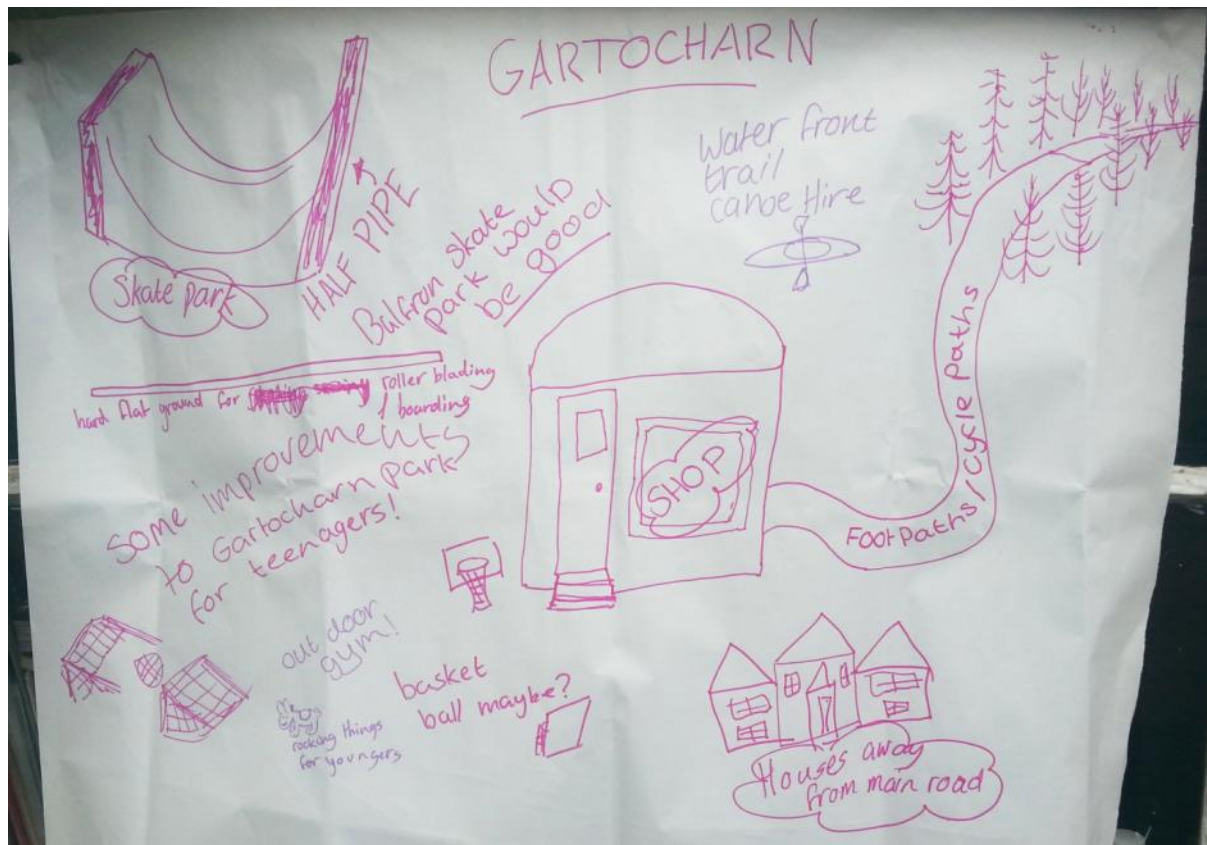 GARTOCHARN
Skate park
HALF PIPE
Balfron skate
park would
be good
Water front
trail
canoe Hire
hard flat ground for roller blading
/ boarding
some improvements
to Gartocharn park
for teenagers!
SHOP
FootPaths/Cycle Paths
out door
gym!
basket
ball maybe?
rocking things
for youngers
Houses away
from main road